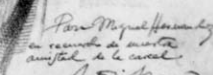 Para Miguel Hernandez
en recuerdo de nuestra
amistad de la carcel